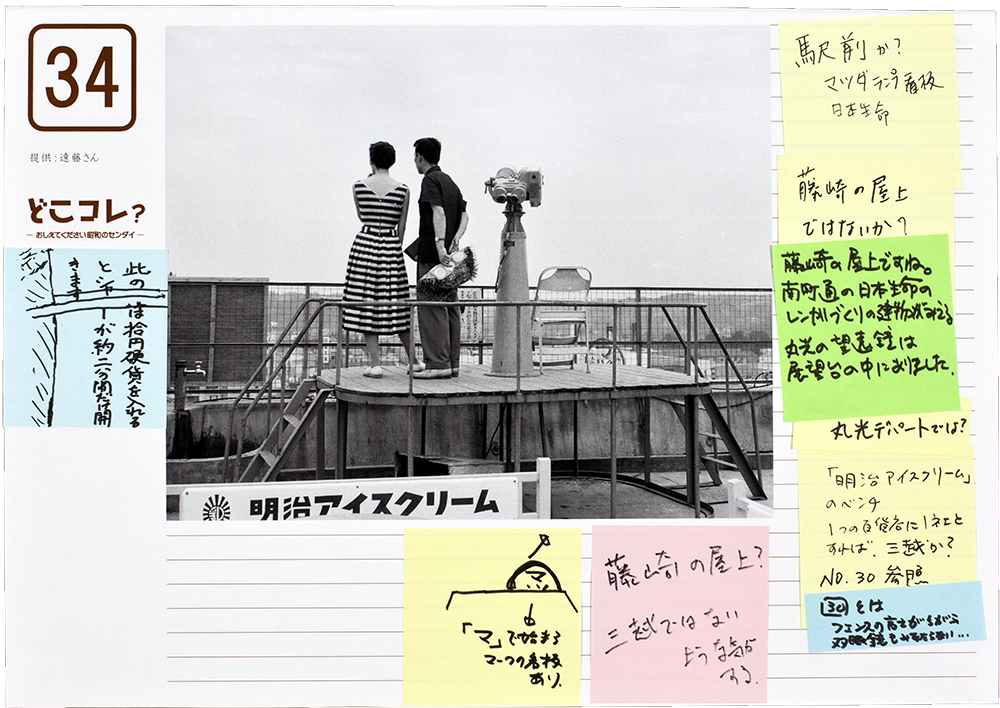 34
提供：遠藤さん
どこコレ？
― おしえてください昭和のセンダイ ―
此の
は拾円硬貨を入れる
と
が約二分間だけ開
きます
明治アイスクリーム
駅前か？
マツダランプ看板
日本生命
藤崎の屋上
ではないか？
藤崎の屋上ですね。
南町通の日本生命の
レンガづくりの建物が見える
丸光の望遠鏡は
展望台の中にありました。
丸光デパートでは？
「明治アイスクリーム」
のベンチ
1つの百貨店に1ネエと
すれば、三越か？
NO.30 参照
30とは
フェンスの高さがちがう
双眼鏡も
マ
「マ」で始まる
マークの看板
あり。
藤崎の屋上？
三越ではない
ような気が
する。